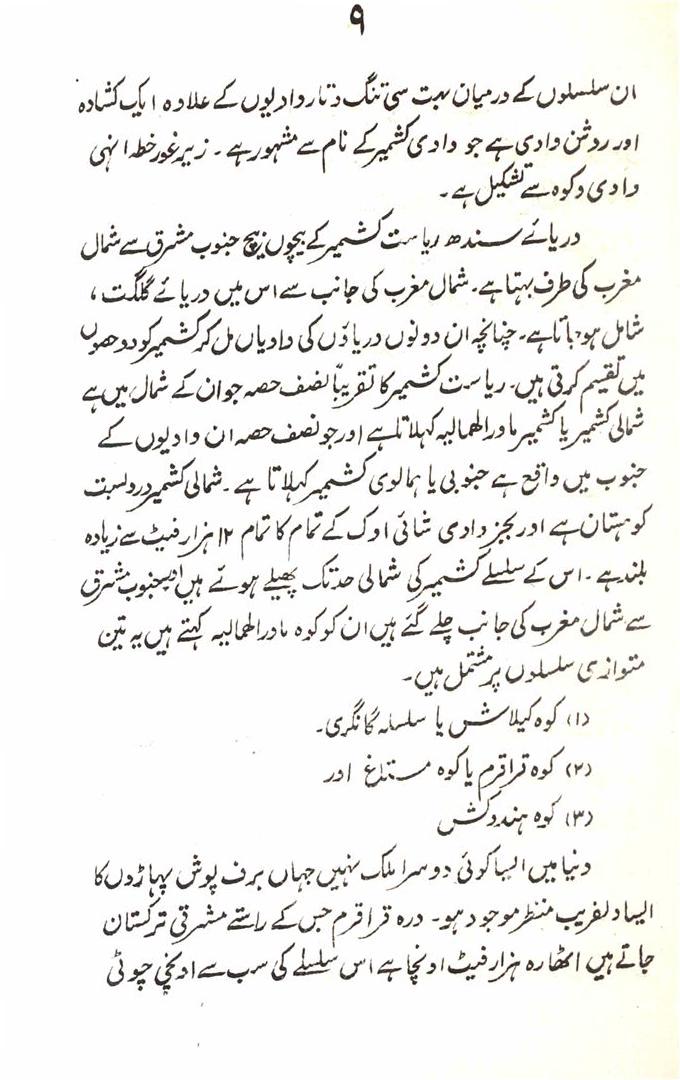 ۹
ان سلسلوں کے درمیان بہت سی تنگ و تار وادیوں کے علاوہ ایک کشادہ
اور روشن وادی ہے جو وادی کشمیر کے نام سے مشہور ہے۔ زیر غور خطہ انہی
وادی و کوہ سے تشکیل ہے۔
دریائے سندھ ریاست کشمیر کے بیچوں بیچ جنوب مشرق سے شمال
مغرب کی طرف بہتا ہے۔ شمال مغرب کی جانب سے اس میں دریائے گلگت،
شامل ہو جاتا ہے۔ چنانچہ ان دونوں دریاؤں کی وادیاں مل کر کشمیر کو دو حصوں
میں تقسیم کرتی ہیں۔ ریاست کشمیر کا تقریباً نصف حصہ جو ان کے شمال میں ہے
شمالی کشمیر یا کشمیر ماورا لھمالیہ کہلاتا ہے اور جو نصف حصہ ان وادیوں کے
جنوب میں واقع ہے جنوبی یا ہمالوی کشمیر کہلاتا ہے۔ شمالی کشمیر زبردست
کوہستان ہے اور بجز وادی شائی اوک کے تمام کا تمام ۱۲ ہزار فیٹ سے زیادہ
بلند ہے۔ اس کے سلسلے کشمیر کی شمالی حد تک پھیلے ہوئے ہیں اور جنوب مشرق
سے شمال مغرب کی جانب چلے گئے ہیں ان کو کوہ ماورا لھمالیہ کہتے ہیں یہ تین
متوازی سلسلوں پر مشتمل ہیں۔
(۱) کوہ کیلاش یا سلسلہ گانگری۔
(۲) کوہ قراقرم یا کوہ مستاغ اور
(۳) کوہ ہندوکش
دنیا میں ایسا کوئی دوسرا ملک نہیں جہاں برف پوش پہاڑوں کا
ایسا دلفریب منظر موجود ہو۔ درہ قراقرم جس کے راستے مشرقی ترکستان
جاتے ہیں اٹھارہ ہزار فیٹ اونچا ہے اس سلسلے کی سب سے اونچی چوٹی